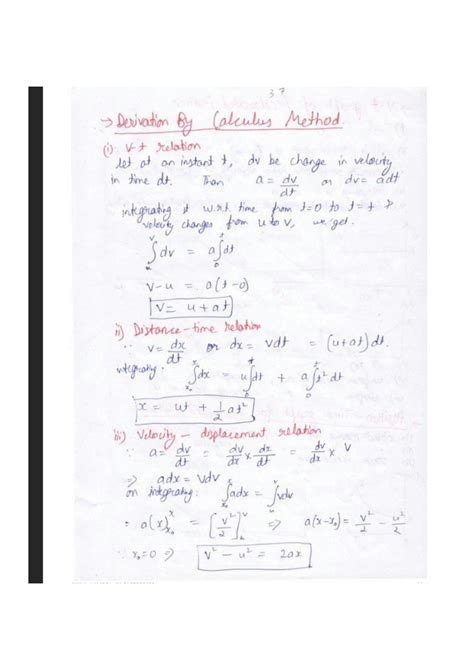 37
→ Derivation By Calculus Method.
(i) V-t relation
let at an instant t, dv be change in velocity
in time dt. Then a = dv/dt or dv = adt
integrating it w.r.t. time from t=0 to t=t &
velocity changes from u to v, we get.
∫dv = a∫dt
v-u = a(t-0)
V = u + at
ii) Distance-time relation
∵ v = dx/dt or dx = vdt = (u+at)dt.
integrating. ∫dx = u∫dt + a∫t² dt
x = ut + 1/2 at²
iii) Velocity — displacement relation
∵ a = dv/dt = dv/dt × dx/dx = dv/dx × V
⇒ adx = vdv
on integrating: ∫adx = ∫vdv
= a(x) = [v²/2] ⇒ a(x-x₀) = v²/2 - u²/2
∵ x₀=0 ⇒ V² - u² = 2ax